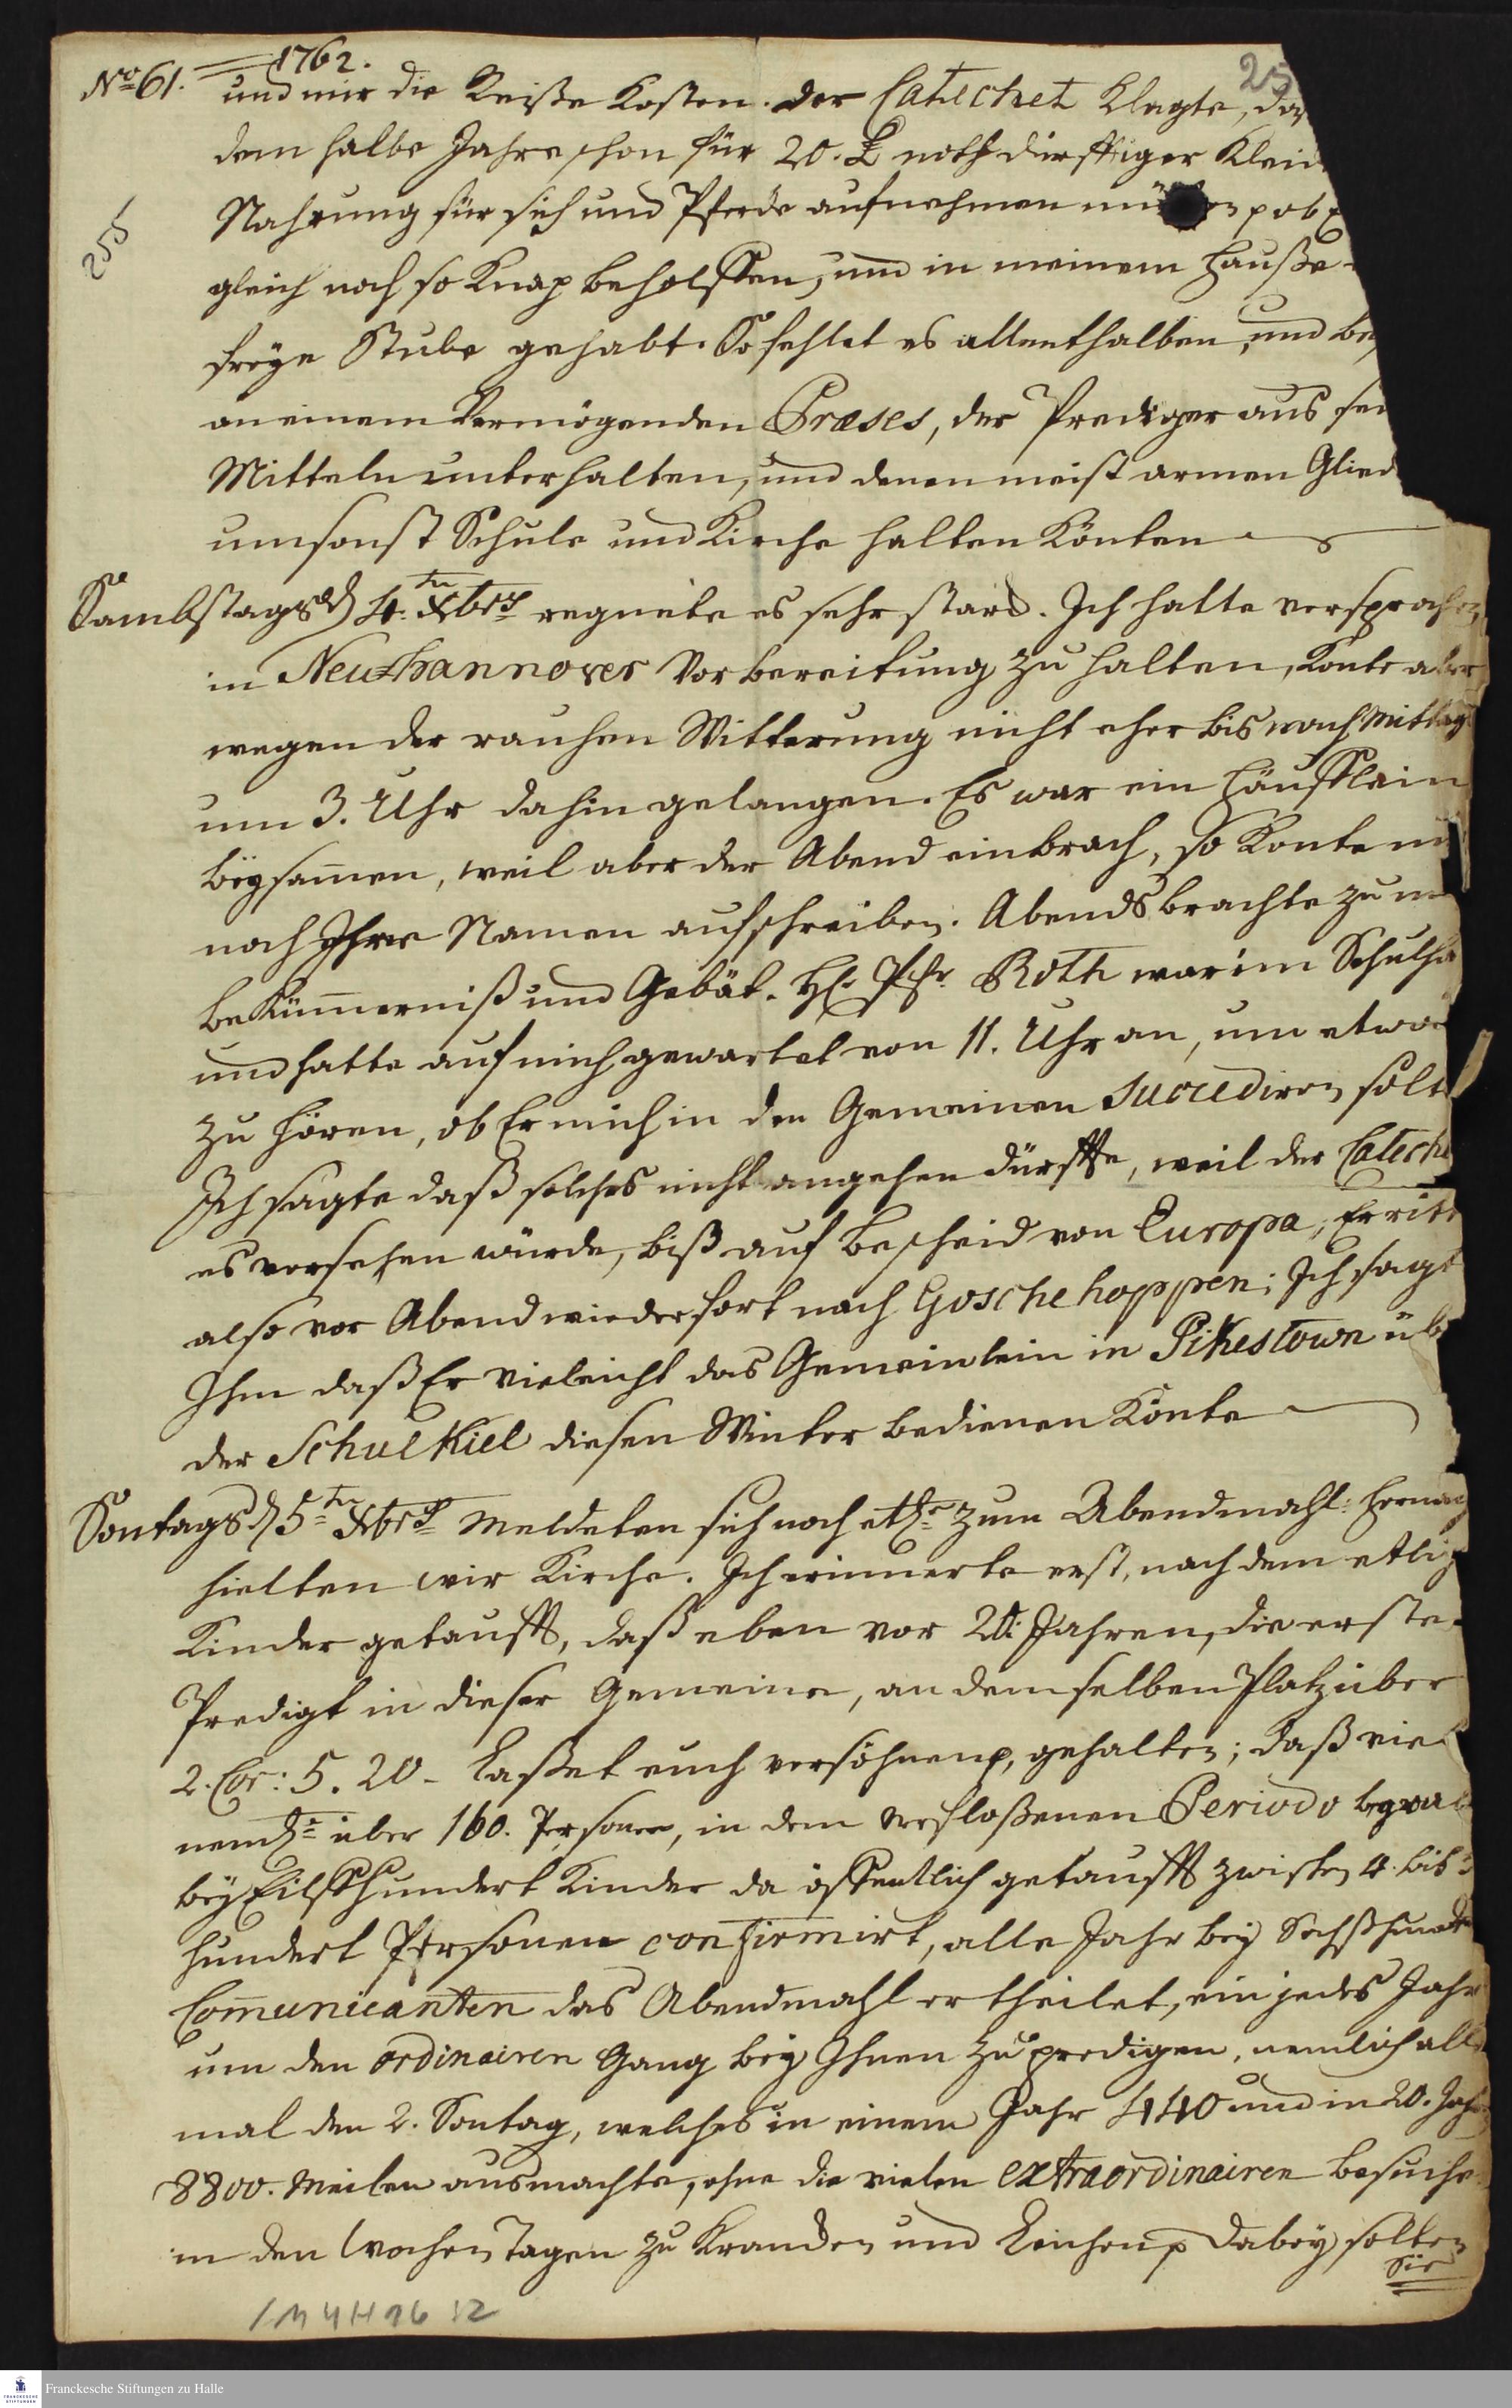 No 61. 1762. 25
und mir die Reiße Kosten. der Catechet Klagte, daß
dem halbe Jahre schon für 20. £ nothdürfftiger Kleid
Nahrung für sich und Pferde aufnehmen
255
gleich noch so Knap beholffen, und in meinem Hauße
freye Stube gehabt. So fehlet es allenthalben, und be
an einem Vermögenden Præses, der Prediger aus sei
Mitteln unterhalten, und denen meist armen Glied
umsonst Schule und Kirche halten Könten
Sambstags d 4ten Xbris regnete es sehr starck. Ich hatte versprochen
in Neu-Hannover Vorbereitung zu halten, Konte aber
wegen der rauhen Witterung nicht eher bis nach Mittag
um 3. Uhr dahin gelangen. Es war ein Häufflein
beysam̄en, weil aber der Abend einbrach, so Konte nu
noch Ihre Namen aufschreiben. Abends brachte zu
beKüm̄erniß und Gebät. H. Pfr. Roth war im Schulha
und hatte auf mich gewartet von 11. Uhr an, um etwa
zu hören, ob Er mich in den Gemeinen succediren solt
Ich sagte daß solches nicht angehen dürffte, weil der Catech
es versehen würde, biß auf bescheid von Europa; Er ritt
also vor Abend wieder fort nach Goschehoppen; Ich sagt
Ihm daß Er vieleicht das Gemeinlein in Pikestown üb
der Schulkiel diesen Winter bedienen Könte
Sontags d 5ten Xbris Meldeten sich noch etl. zum Abendmahl: hernach
hielten wir Kirche. Ich erinnerte erst, nach dem etlich
Kinder getaufft, daß eben vor 20. Jahren, die erste
Predigt in dieser Gemeine, an demselben Platz über
2. Cor: 5. 20 - Laßet euch versöhnen p, gehalten; daß viel
neml. über 160. Personen, in dem verfloßenen Periodo begrab
bey Eilffhundert Kinder da öffentlich getaufft zwischen 4. bis 5
hundert Personen confirmirt, alle Jahr bey Sechßhundert
Com̄unicanten das Abendmahl ertheilet, ein jedes Jahr
um den ordinairen Gang bey Ihnen zu predigen, nemlich alle
mal den 2. Sontag, welches in einem Jahr 440 und in 20. Jah
8800. Meilen ausmachte, ohne die vielen extraordinairen besuche
in den Wochen Tagen zu Krancken und Leichen p dabey solten
Sie
Franckesche Stiftungen zu Halle